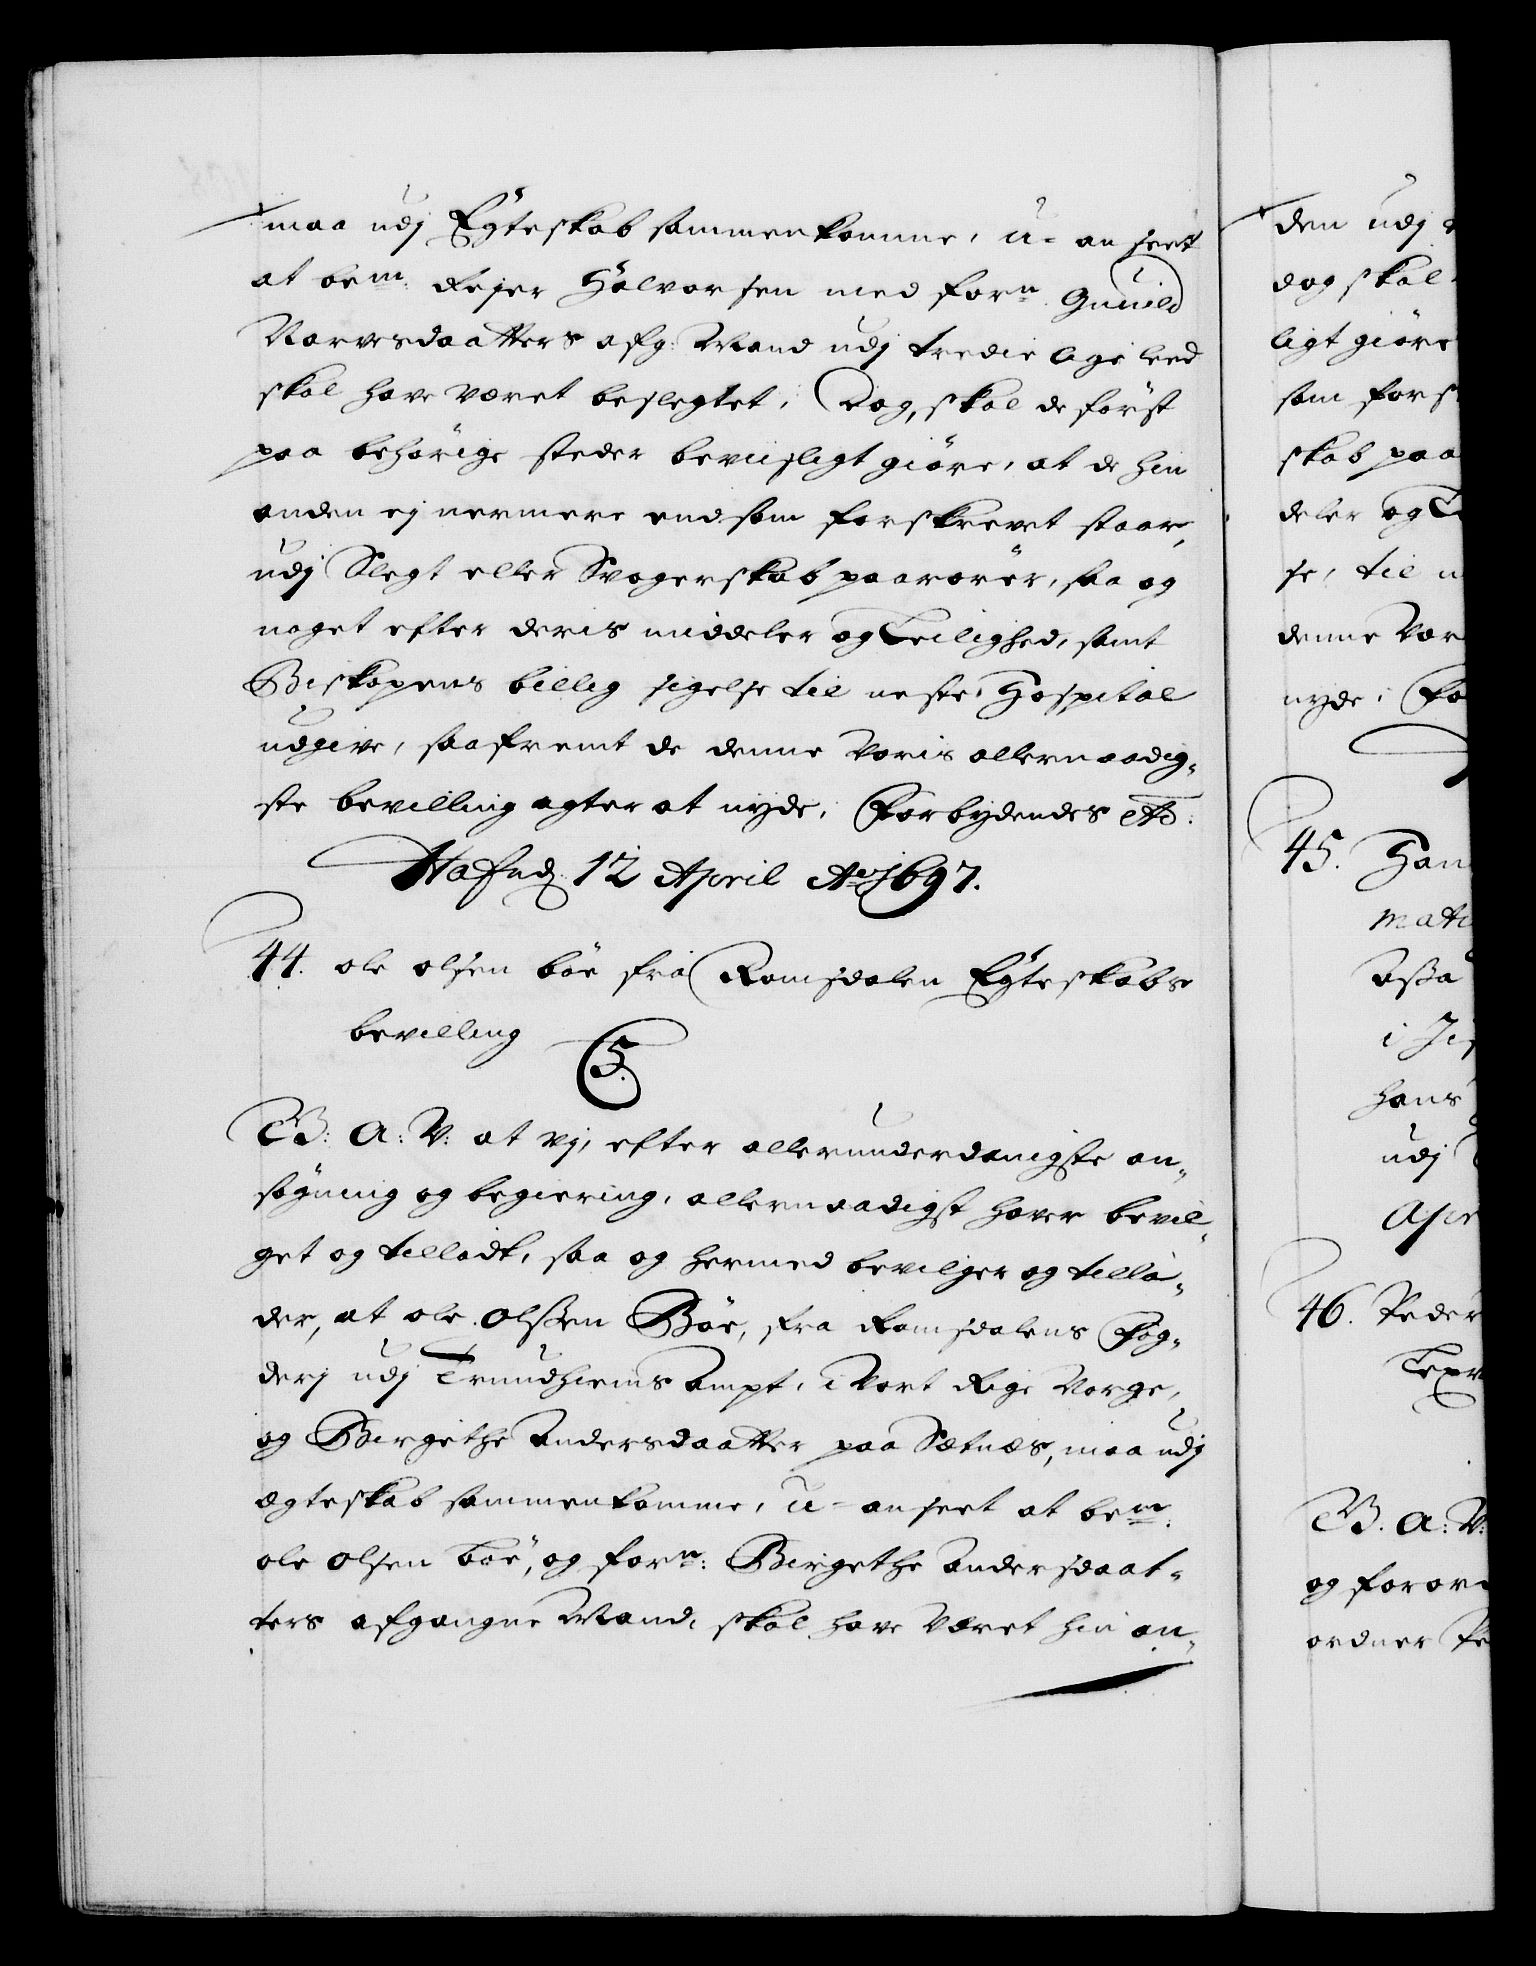 maa udj Egteskab sammenkomme, u-anseet
at bem: Rejer Halvorsen med forn: Gunild
Narvesdaatters afg: Mand udj tredie lige leed
skal have været beslegtet, Dog, skal de först
paa behörige steder beviisligt giöre, at de hin
anden ej nermere end som forskrevet staar,
udj Slegt eller Svogerskab paarörer, saa og
noget efter deris middeler og Leilighed, samt
Biskopens billig sigelse til neste Hospital
udgive, saafremt de denne Voris allernaadig„
ste bevilling agter at nyde, Forbydendes etc:
Hafnd. 12 April Ao 1697.
44. ole olsen böe fra Romsdalen Egteskabs
bevilling
5.
G: A: V: at Vj, efter allerunderdanigste an„
sögning og begiering, allernaadigst haver bevil„
get og tilladt, saa og hermed bevilger og tilla„
der, at ole olssen Böe, fra Romsdalens Fog„
derj udj Trundhiems Ampt, i Vort Rige Norge,
og Birgethe Andersdaatter paa Sætnæs, maa udj
egteskab sammenkomme, u-anseet at bem:
ole olsen böe, og forn: Birgethe Andersdaat„
ters afgangne Mand, skal have været hin an„
den udj
dog skal
ligt giöre
som forsk
skab paa
deler og Le
se, til n
denne Vor
nyde, Fo
45. Han
mati
Assa
i Jis
hans
udj
Apr
46. Peder
Expe
G. A: V:
og foror
ordner Pe